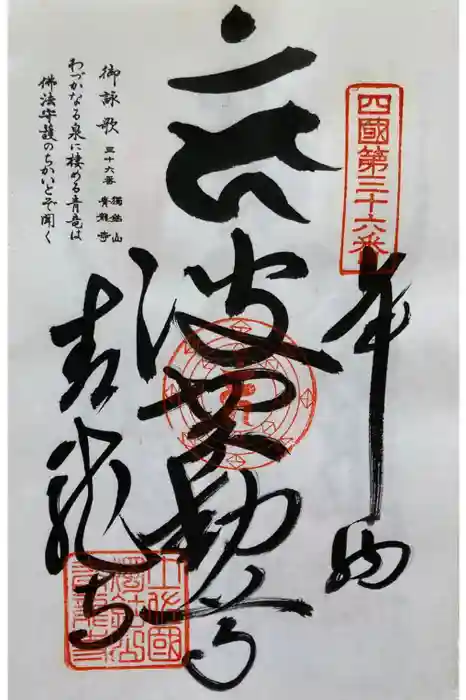 四國第三十六番
奉納
波切不動尊
青龍寺
御詠歌 三十六番 獨鈷山 青龍寺
わづかなる泉に棲める青竜は
佛法守護のちかいとぞ聞く
土佐國
獨鈷山
青龍寺